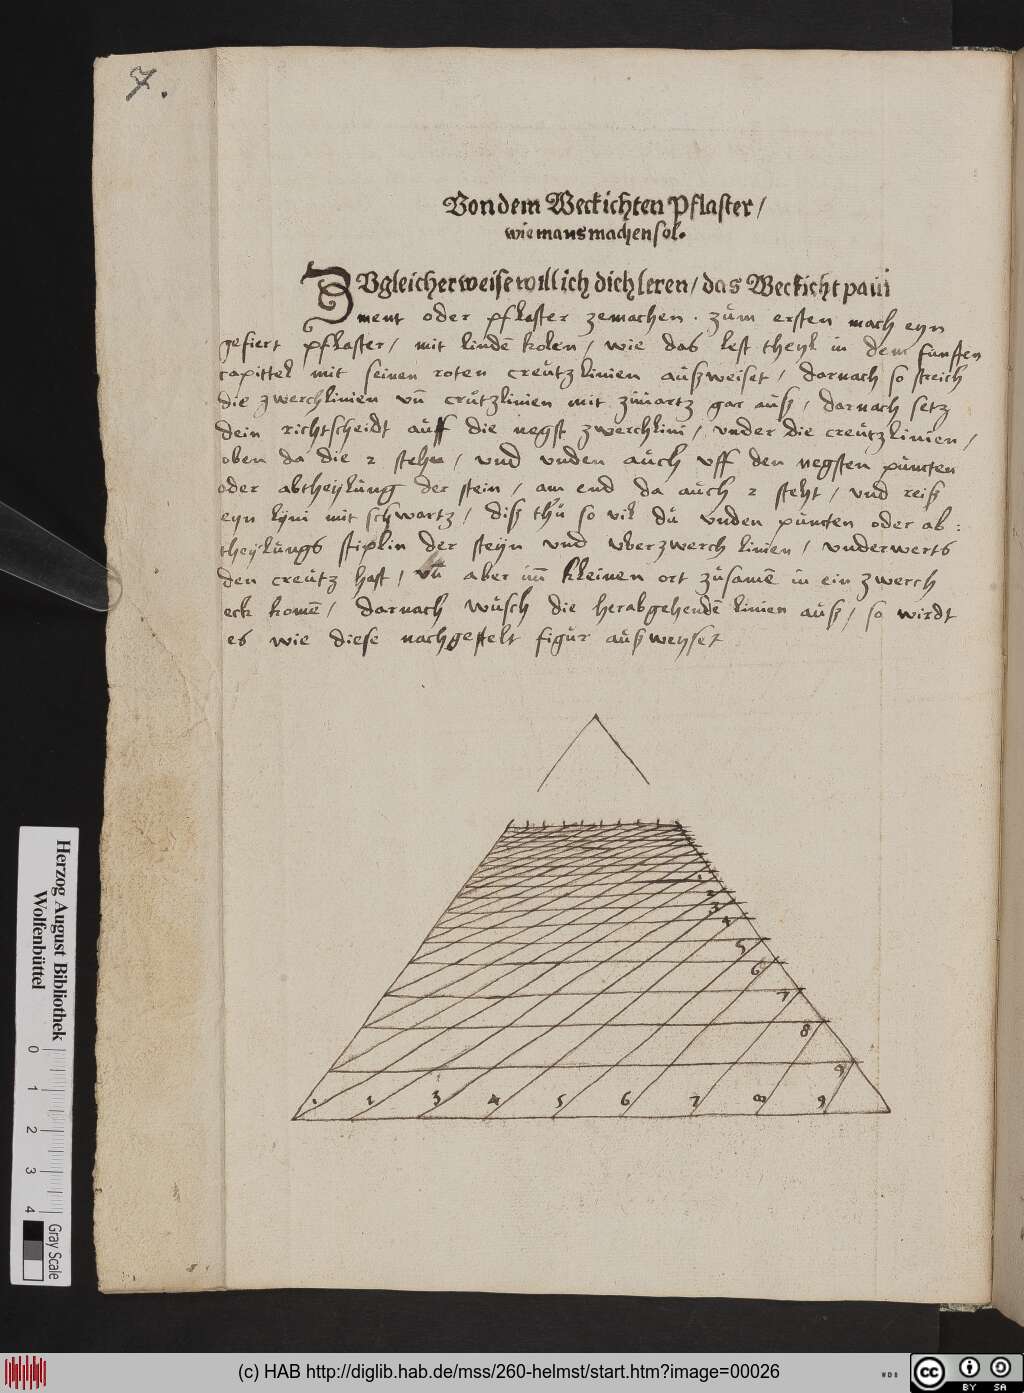 7.
Von dem Weckichten Pflaster /
wie mans machen sol.
ZV gleicher weise will ich dich leren / das Weckicht paui
ment oder pflaster zemachen . züm ersten mach eyn
gefiert pflaster / mit lindē kolen / wie das lest theyl in dem funften
capittel mit seinen roten creützlinien außweiset / darnach so streich
die zwerchlinien vn̄ crützlinien mit gar auß / darnach setz
dein richtscheidt auff die negst zwerchlini / vnder die creützlinien /
oben da die 2 stehn / vnd vnden auch vff den negsten püncten
oder abtheylüng der stein / am end da auch 2 steht / vnd reiß
eyn lyni mit schwartz / diß thü so vil dü vnden püncten oder ab :
theylüngs stiplin der steyn vnd vberzwerch linien / vnderwerts
den creütz hast / vn̄ aber kleinen ort züsamē in ein zwerch
eck komē / darnach wüsch die herabgehendē linien auß / so wirdt
es wie diese nachgestelt figür außweyset
1 2 3 4 5 6 7 8 9
1 2 3 4 5 6 7 8 9
Herzog August Bibliothek
Wolfenbüttel
0 1 2 3 4
Gray Scale
(c) HAB http://diglib.hab.de/mss/260-helmst/start.htm?image=00026
WDB
cc BY SA